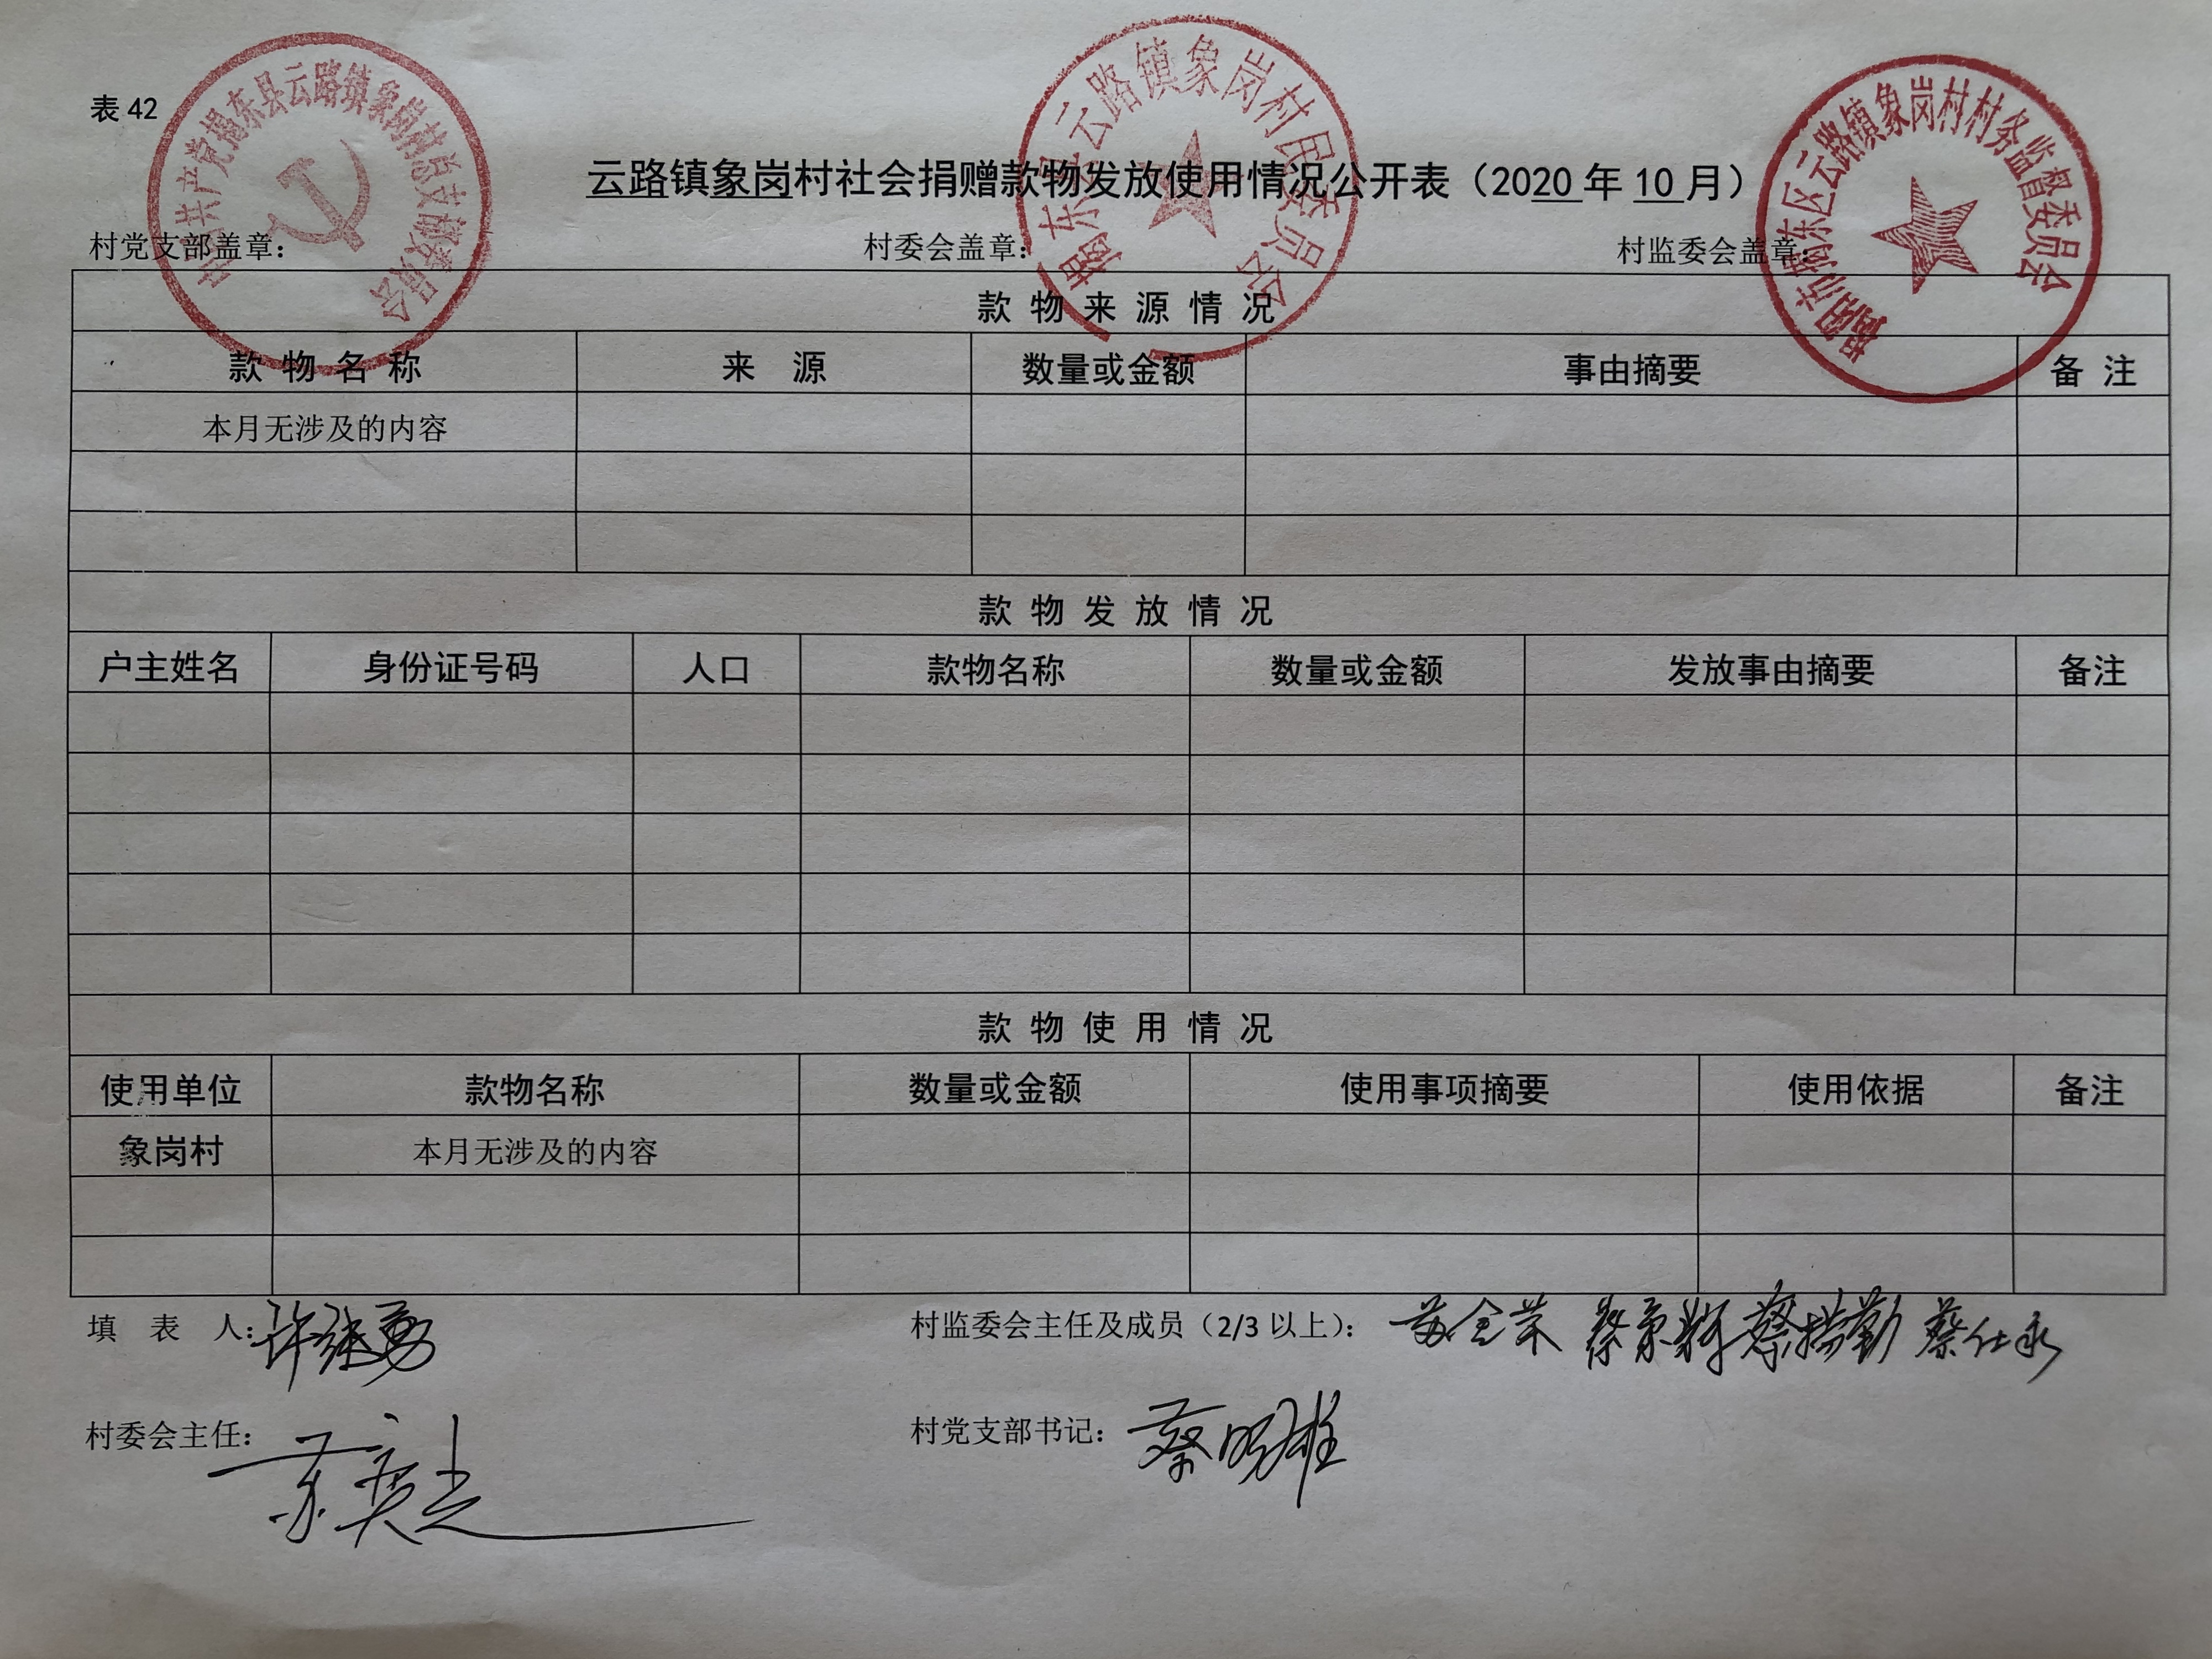 表 42
中国共产党揭东县云路镇象岗村总支部委员会
揭东县云路镇象岗村民委员会
揭阳市揭东区云路镇象岗村村务监督委员会
云路镇象岗村社会捐赠款物发放使用情况公开表（2020 年 10 月）
村党支部盖章： 村委会盖章： 村监委会盖章：
款 物 来 源 情 况
款 物 名 称 来 源 数量或金额 事由摘要 备 注
本月无涉及的内容
款 物 发 放 情 况
户主姓名 身份证号码 人口 款物名称 数量或金额 发放事由摘要 备注
款 物 使 用 情 况
使用单位 款物名称 数量或金额 使用事项摘要 使用依据 备注
象岗村 本月无涉及的内容
填 表 人： 村监委会主任及成员（2/3 以上）： 蔡仕永
村委会主任： 村党支部书记： 蔡明雄